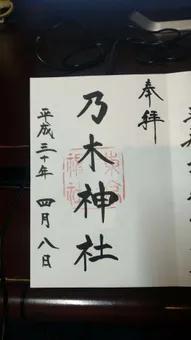 奉拝
乃木神社
平成三十年 四月八日